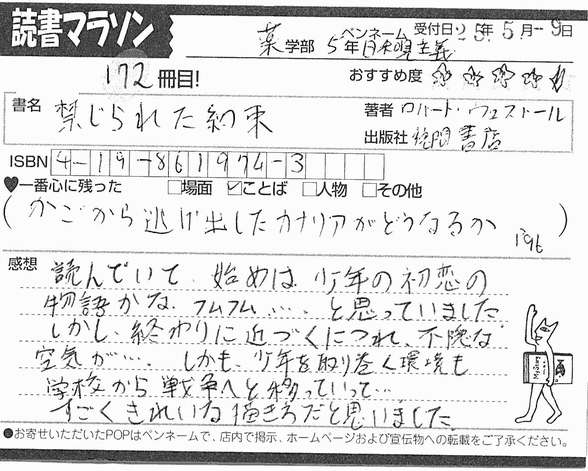 読書マラソン
薬学部 5年 ペンネーム 日和見主義 受付日 25年5月9日
172冊目!
おすすめ度 ☆☆☆☆☆
書名 禁じられた約束
著者 ロバート・ウェストール
出版社 徳間書店
ISBN 4-19-861974-3
♥一番心に残った □場面 ☑ことば □人物 □その他
(かごから逃げ出したカナリアがどうなるか P196)
感想 読んでいて、始めは少年の初恋の
物語かな、フムフム…、と思っていました。
しかし、終わりに近づくにつれ、不穏な
空気が…。しかも、少年を取り巻く環境も
学校から戦争へと移っていって…
すごくきれいな描きろだと思いました。
●お寄せいただいたPOPはペンネームで、店内で掲示、ホームページおよび宣伝物への転載をご了承ください。